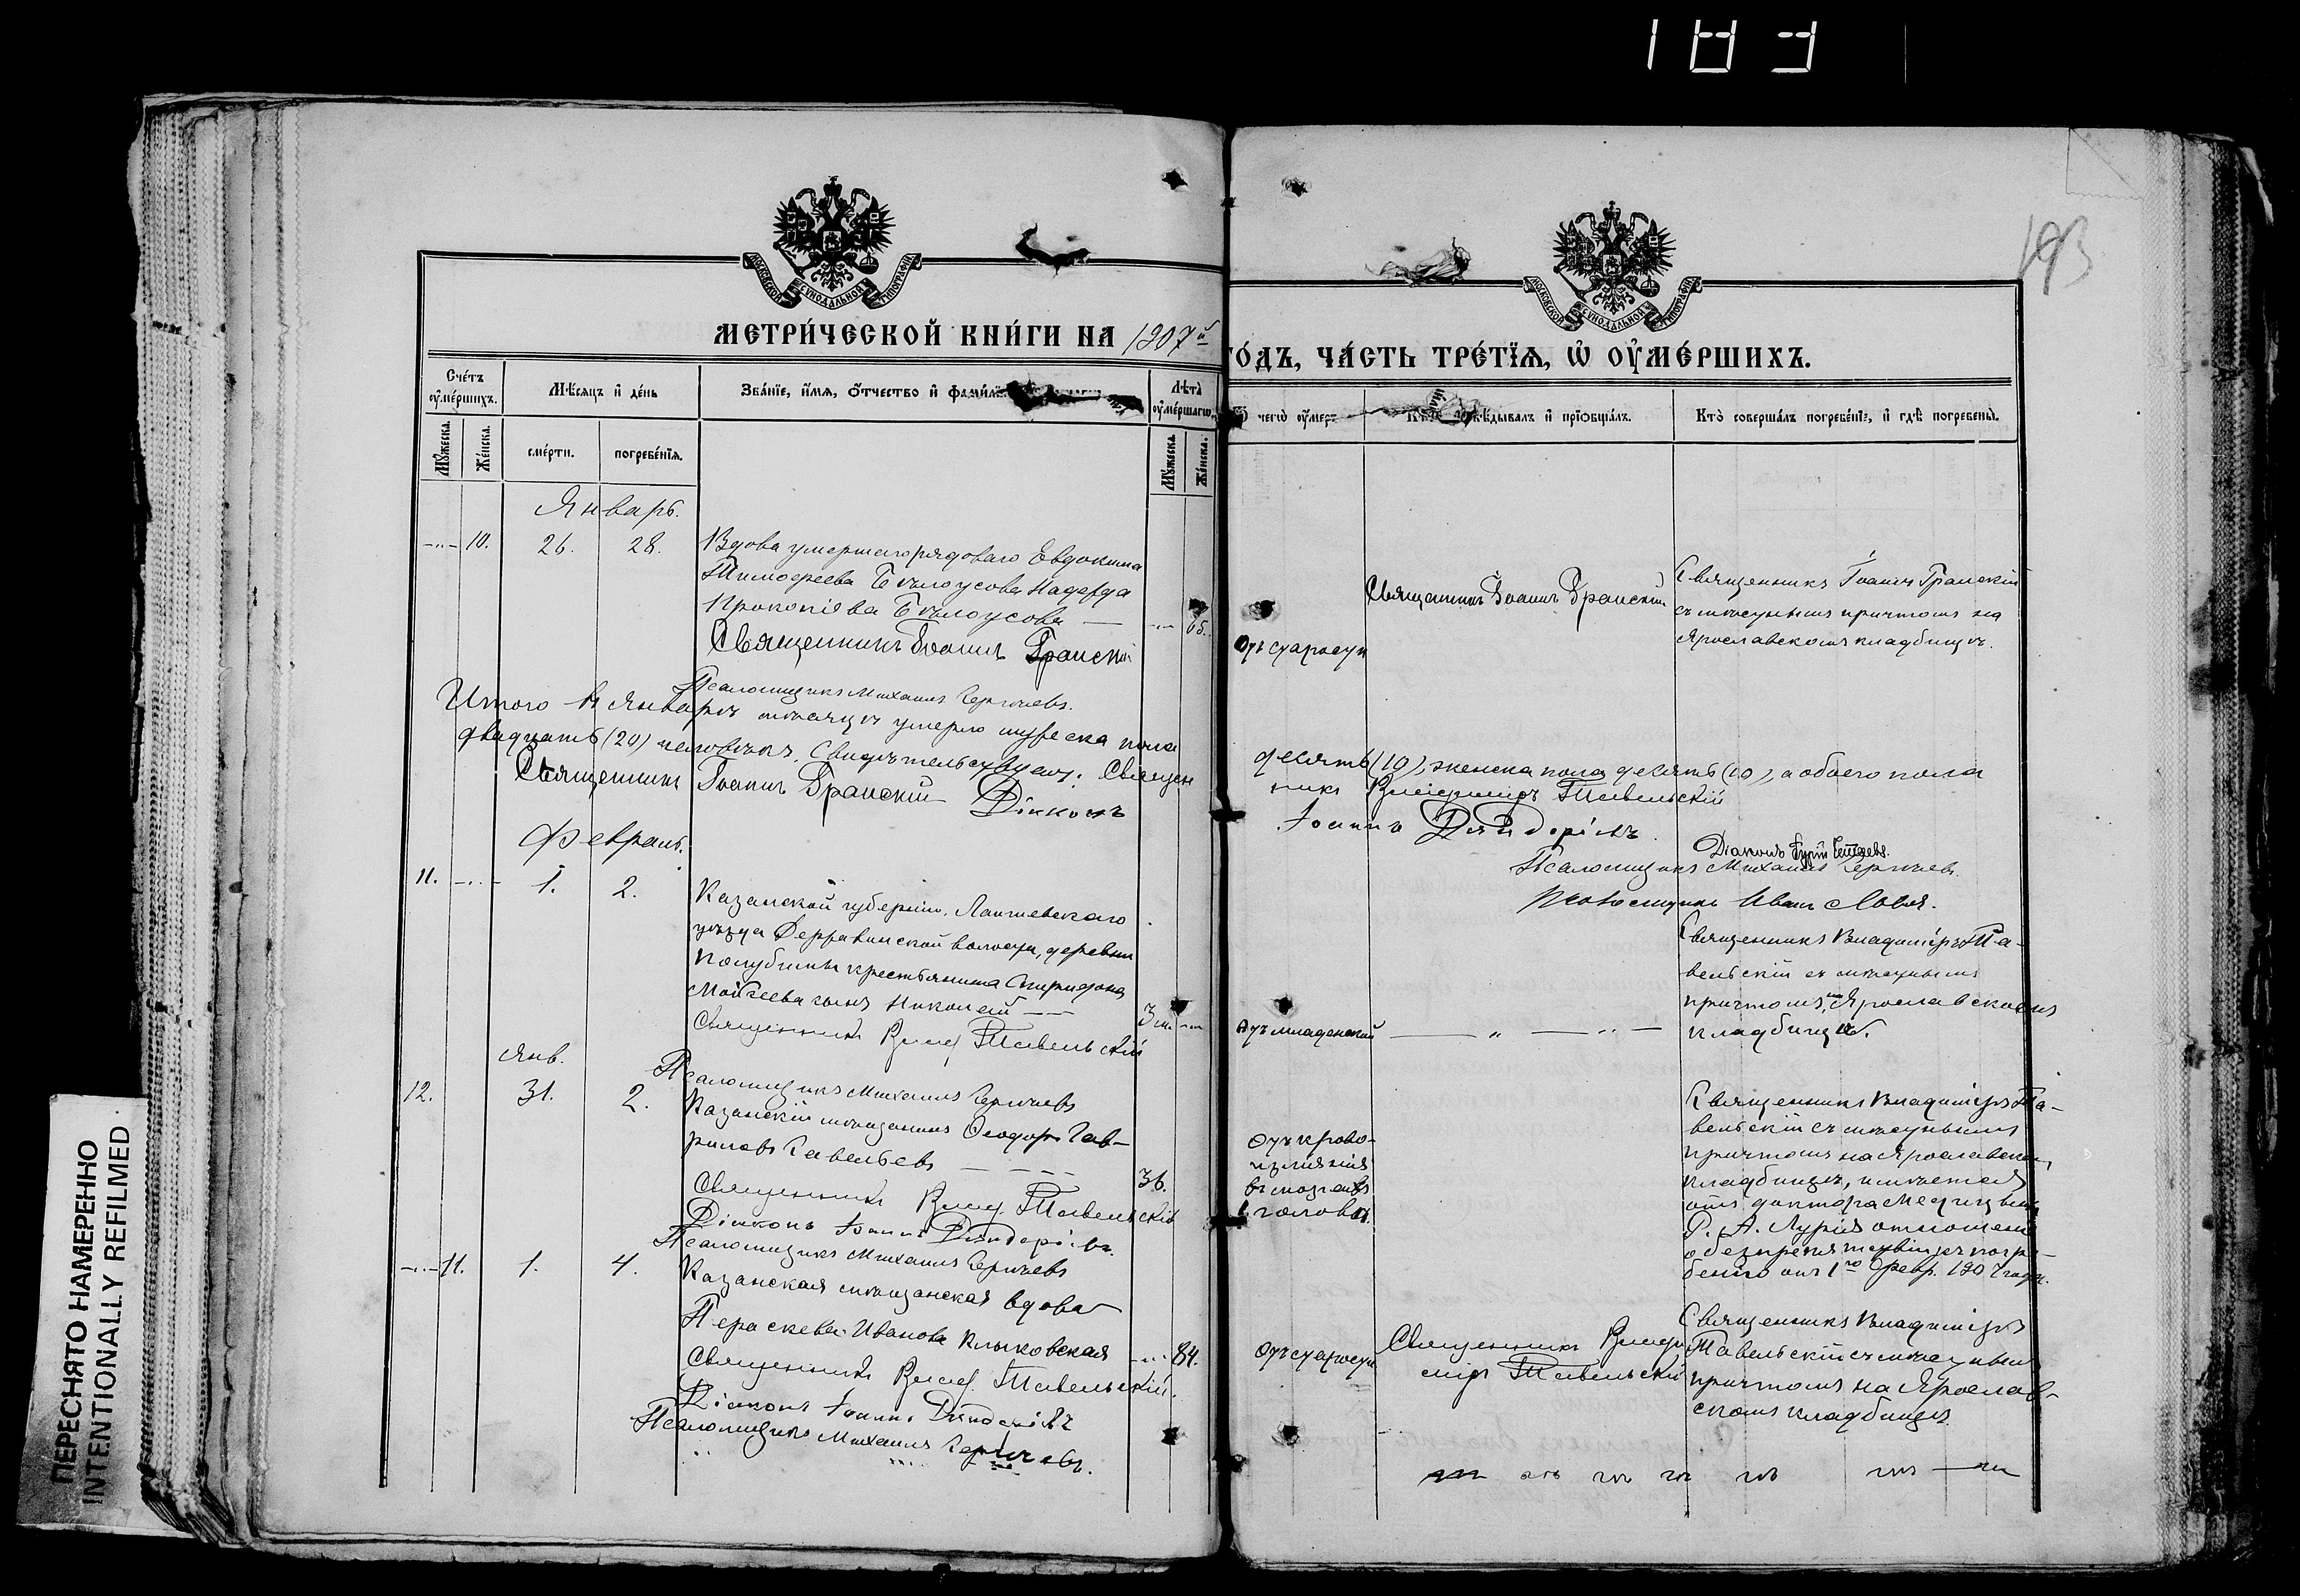 183
193
МОСКОВСКОЙ СѴНОДАЛЬНОЙ ТИПОГРАФІИ
МОСКОВСКОЙ СѴНОДАЛЬНОЙ ТИПОГРАФІИ
МЕТРИ́ЧЕСКОЙ КНИ́ГИ НА 1907й
ГО́ДЪ, ЧА́СТЬ ТРЕ́ТЇѦ, Ѡ҆ ОУ҆МЕ́РШИХЪ.
Сче́тъ оу҆ме́ршихъ.
Мꙋ́жеска.
Же́нска.
Мѣ́сѧцъ и҆ де́нь
сме́рти.
погребе́нїѧ.
Зва́нїе, и҆́мѧ, ѻ҆́тчество и҆
Лѣ́та оу҆ме́ршагѡ.
Мꙋ́жеска.
Же́нска.
Ѿ чегѡ̀ оу҆́мер
и҆ прїѻбща́лъ.
Кто̀ соверша́лъ погребе́нїе, и҆ гдѣ̀ погребены̀.
Январь.
-"- 10. 26. 28.
Вдова умершаго рядоваго Евдокима
Тимофеева Бѣлоусова Надежда
Прокопіева Бѣлоусова —
-"- 65.
Священникъ Іоаннъ Гранскій
Псаломщикъ Михаилъ Сергѣевъ.
Отъ старости
Священникъ Іоаннъ Гранскій
Священникъ Іоаннъ Гранскій
съ мѣстнымъ причтомъ на
Ярославскомъ кладбищѣ.
Итого въ Январѣ мѣсяцѣ умерло мужеска пола
десять (10), женска пола десять (10), а обоего пола
двадцать (20) человѣкъ. Свидѣтельствуемъ: Священ
никъ Владиміръ Тавельскій
Священникъ Іоаннъ Гранскій Діаконъ
Іоаннъ
Діаконъ Гурій
Псаломщикъ Михаилъ Сергѣевъ.
Псаломщикъ Иванъ
Февраль.
11. -"- 1. 2.
Казанской губерніи, Лаишевскаго
уѣзда Державинской волости, деревни
крестьянина Спиридона
Мойсеева сынъ Николай —
3 м. -"-
Священникъ Влад. Тавельскій
Псаломщикъ Михаилъ Сергѣевъ
Отъ младенской
— " — " —
Священникъ Владиміръ Та-
вельскій съ мѣстнымъ
причтомъ, на Ярославскомъ
кладбищѣ.
Янв.
12. 31. 2.
Казанскій мѣщанинъ Ѳеодоръ Гав-
риловъ Савельевъ — — —
36.
Священникъ Влад. Тавельскій
Діаконъ Іоаннъ
Псаломщикъ Михаилъ Сергѣевъ
Отъ крово-
изліянія
въ мозгъ
головы
Священникъ Владиміръ Та-
вельскій съ мѣстнымъ
причтомъ на Ярославском
кладбищѣ, имѣется
отъ доктора медицины
Р. А. Лурія отношеніе
о безпрепятствіи къ погре-
бенію отъ 1го Февр. 1907 года.
-"- 11. 1. 4.
Казанская мѣщанская вдова
Параскева Иванова Клыковская
-"- 84.
Священникъ Влад. Тавельскій.
Діаконъ Іоаннъ
Псаломщикъ Михаилъ Сергѣевъ.
Отъ старости
Священникъ Влади
міръ Тавельскій
Священникъ Владиміръ
Тавельскій съ мѣстнымъ
причтомъ на Ярослав-
скомъ кладбищѣ.
ПЕРЕСНЯТО НАМЕРЕННО
INTENTIONALLY REFILMED